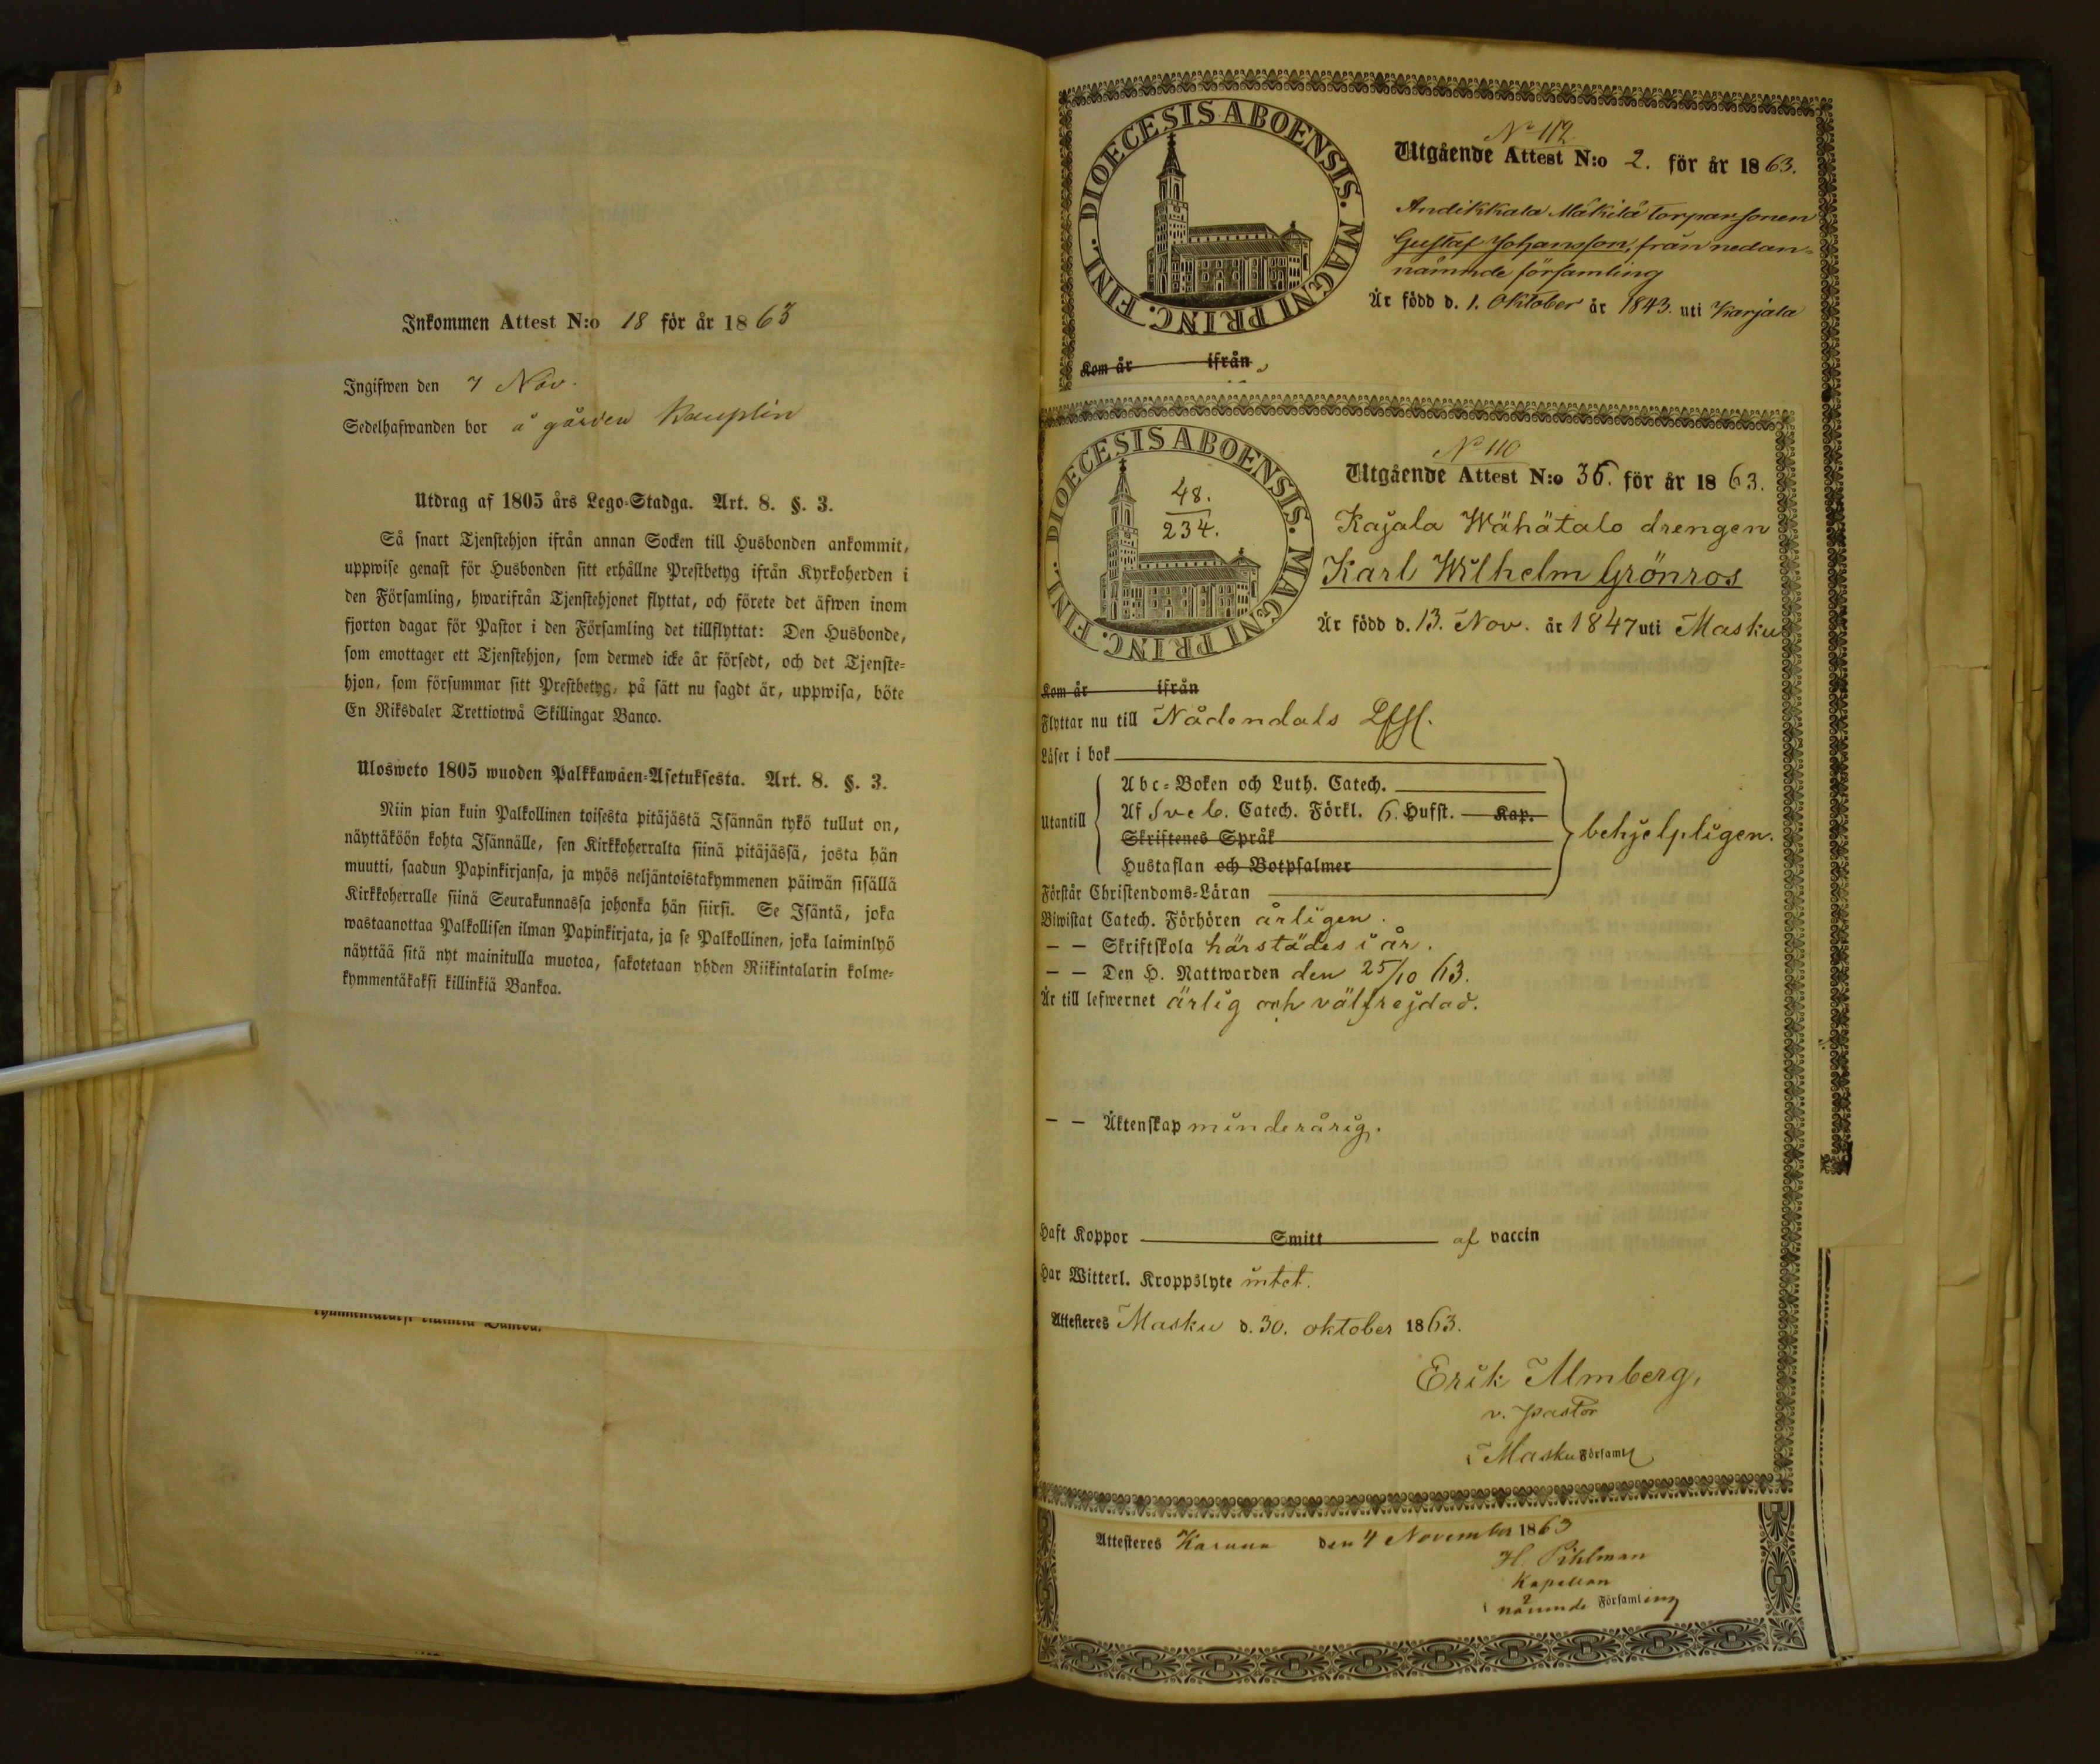 Inkommen Attest N:o 18 för år 1863
Ingifwen den 7 Nov.
Sedelhafwanden bor å gården
Utdrag af 1805 års Lego-Stadga. Art. 8. §. 3.
Så snart Tjenstehjon ifrån annan Socken till Husbonden ankommit,
uppwise genast för Husbonden sitt erhållne Prestbetyg ifrån Kyrkoherden i
den Församling, hwarifrån Tjenstehjonet flyttat, och förete det äfwen inom
fjorton dagar för Pastor i den Församling det tillflyttat: Den Husbonde,
som emottager ett Tjenstehjon, som dermed icke är försedt, och det Tjenste-
hjon, som försummar sitt Prestbetyg, på sätt nu sagdt är, uppwisa, böte
En Riksdaler Trettiotwå Skillingar Banco.
Ulosweto 1805 wuoden Palkkawäen-Asetuksesta. Art. 8. §. 3.
Niin pian kuin Palkollinen toisesta pitäjästä Isännän tykö tullut on,
näyttäköön kohta Isännälle, sen Kirkkoherralta siinä pitäjässä, josta hän
muutti, saadun Papinkirjansa, ja myös neljäntoistakymmenen päiwän sisällä
Kirkkoherralle siinä Seurakunnassa johonka hän siirsi. Se Isäntä, joka
wastaanottaa Palkollisen ilman Papinkirjata, ja se Palkollinen, joka laiminlyö
näyttää sitä nyt mainitulla muotoa, sakotetaan yhden Riikintalarin kolme-
kymmentäkaksi killinkiä Bankoa.
DIOECESIS ABOENSIS. MAGNI PRINC. FINL.
No 112
Utgående Attest N:o 2. för år 1863.
Andikkala Mäkilä torparsonen
Gustaf Johansson, från nedan-
nämnde församling
Är född d. 1. Oktober år 1843. uti Karjala
Kom år ifrån
DIOECESIS ABOENSIS. MAGNI PRINC. FINL.
48.
234.
No 110
Utgående Attest N:o 36. för år 1863.
Kajala Wähätalo drengen
Karl Wilhelm Grönros
Är född d. 13. Nov. år 1847 uti Masku
Kom år ifrån
Flyttar nu till Nådendals
Läser i bok
Utantill
Abc-Boken och Luth. Catech.
Af Sveb. Catech. Förkl. 6. Hufst. Kap.
Skriftenes Språk
Hustaflan och Botpsalmer
behjelpligen.
Förstår Christendoms-Läran
Biwistat Catech. Förhören årligen.
— — Skriftskola härstädes i år.
— — Den H. Nattwarden den 25/10 63.
Är till lefwernet ärlig och välfrejdad.
— — Äktenskap minderårig.
Haft Koppor Smitt af vaccin
Har Witterl. Kroppslyte intet.
Attesteres Masku d. 30. oktober 1863.
Erik Almberg,
v. pastor
i Masku Församl
Attesteres Karuna den 4 November 1863
H. Pihlman
Kapellan
i nämnde Församling